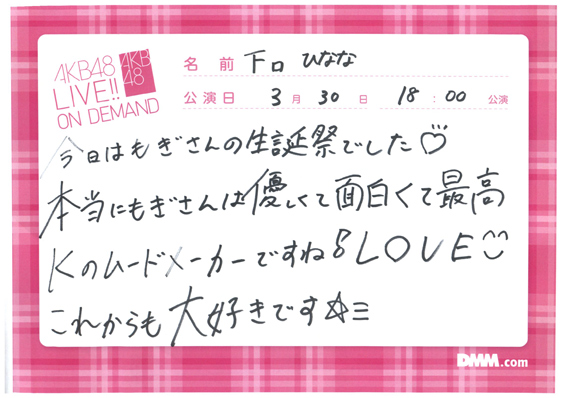 AKB48
LIVE!!
ON DEMAND
AKB
48
名前 下口 ひなな
公演日 3月30日 18:00 公演
今日はもぎさんの生誕祭でした♡
本当にもぎさんは優しくて面白くて最高
Kのムードメーカーですね!LOVE
これからも大好きです☆≡
DMM.com